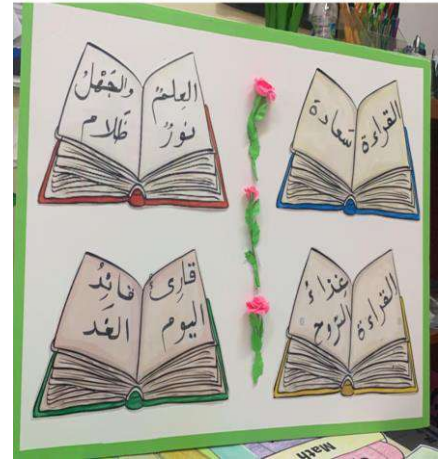 القراءة
سَعادة
العِلمُ
نورٌ
والجَهْلُ
ظَلام
القراءة
غِذاءُ
الرّوح
قارِئُ
اليوم
قائِدُ
الغَد
Math